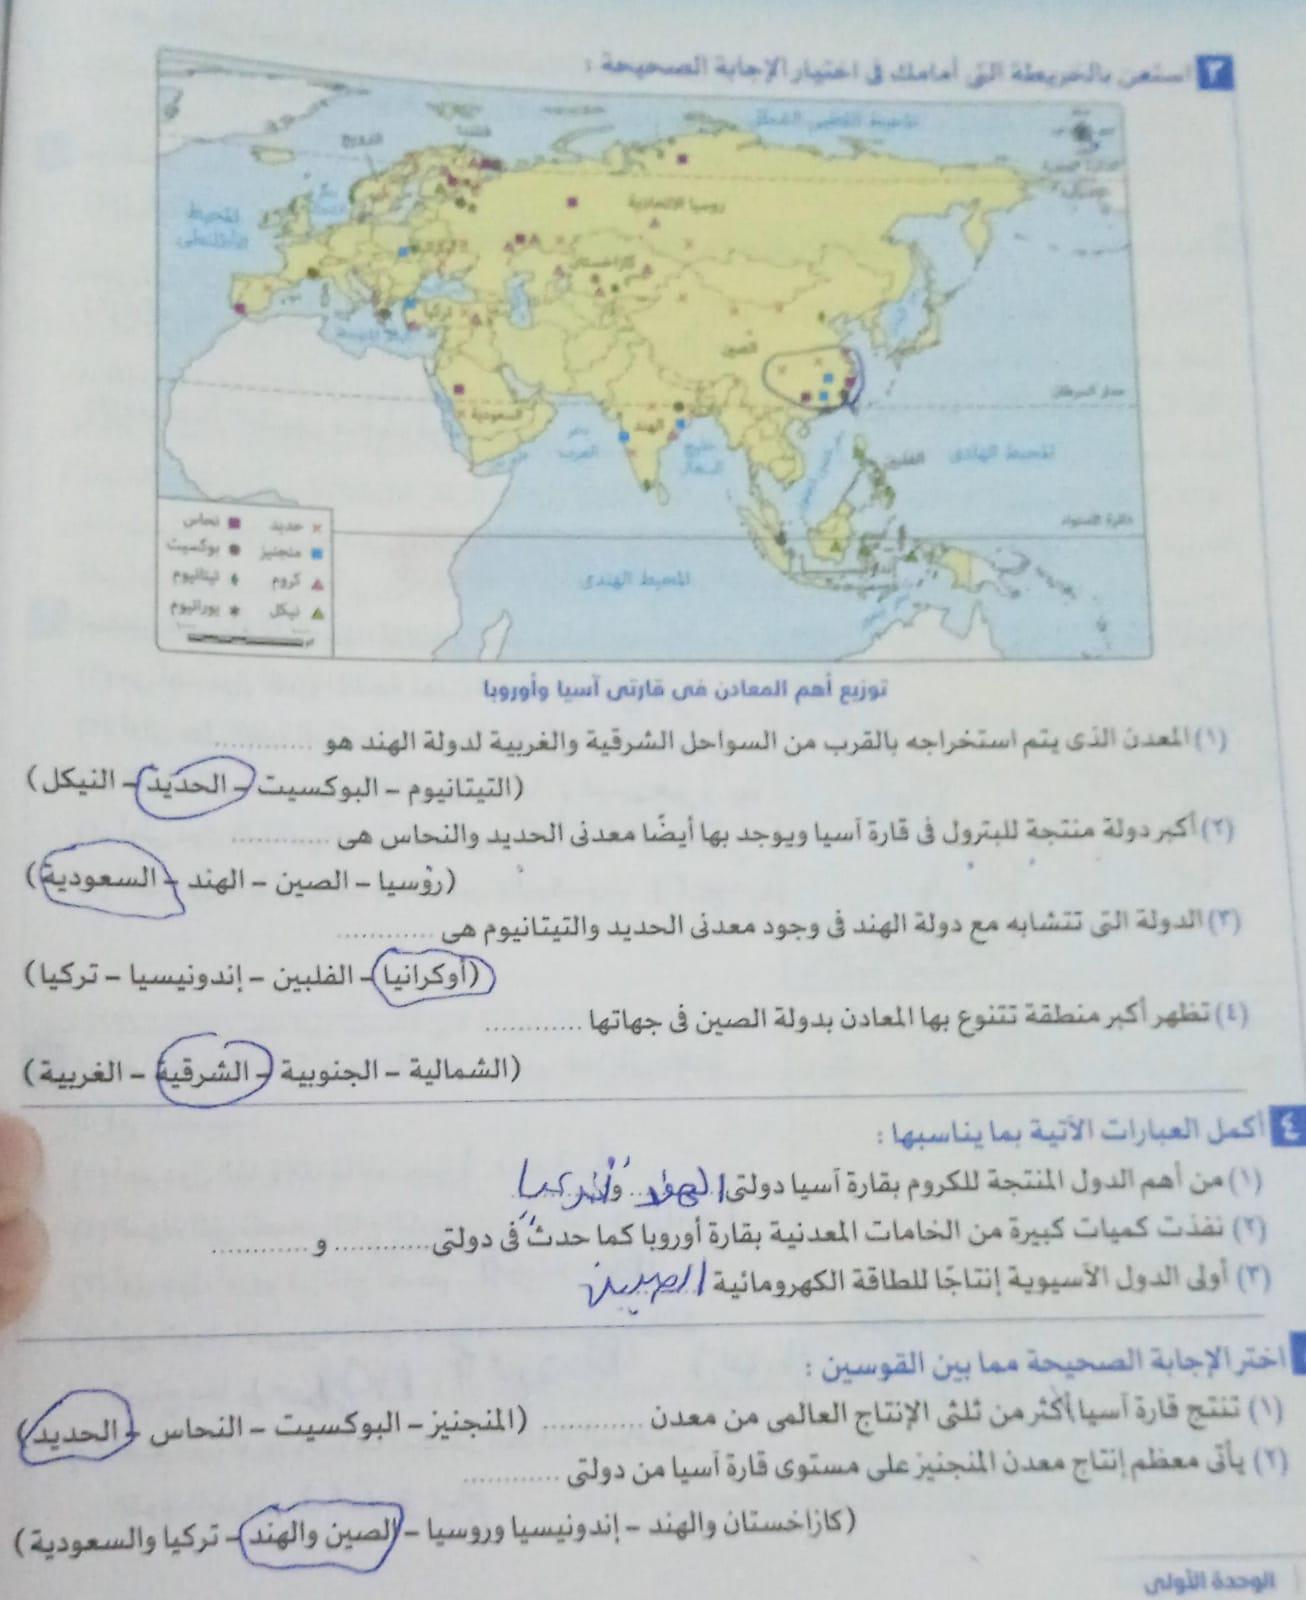 ٣ استعن بالخريطة التى أمامك فى اختيار الإجابة الصحيحة :
المحيط القطبى الشمالى
النرويج
فنلندا
روسيا الاتحادية
المحيط الأطلنطى
كازاخستان
تركيا
الصين
السعودية
الهند
بحر العرب
خليج البنغال
مدار السرطان
الفلبين
المحيط الهادى
دائرة الاستواء
المحيط الهندى
حديد
نحاس
منجنيز
بوكسيت
كروم
تيتانيوم
نيكل
يورانيوم
توزيع أهم المعادن فى قارتى آسيا وأوروبا
(١) المعدن الذى يتم استخراجه بالقرب من السواحل الشرقية والغربية لدولة الهند هو ............
(التيتانيوم – البوكسيت – الحديد – النيكل)
(٢) أكبر دولة منتجة للبترول فى قارة آسيا ويوجد بها أيضًا معدنى الحديد والنحاس هى ............
(روسيا – الصين – الهند – السعودية)
(٣) الدولة التى تتشابه مع دولة الهند فى وجود معدنى الحديد والتيتانيوم هى ............
(أوكرانيا – الفلبين – إندونيسيا – تركيا)
(٤) تظهر أكبر منطقة تتنوع بها المعادن بدولة الصين فى جهاتها ............
(الشمالية – الجنوبية – الشرقية – الغربية)
٤ أكمل العبارات الآتية بما يناسبها :
(١) من أهم الدول المنتجة للكروم بقارة آسيا دولتى الهند و تركيا
(٢) نفذت كميات كبيرة من الخامات المعدنية بقارة أوروبا كما حدث فى دولتى ............ و ............
(٣) أولى الدول الآسيوية إنتاجًا للطاقة الكهرومائية الصين
اختر الإجابة الصحيحة مما بين القوسين :
(١) تنتج قارة آسيا أكثر من ثلثى الإنتاج العالمى من معدن ............ (المنجنيز – البوكسيت – النحاس – الحديد)
(٢) يأتى معظم إنتاج معدن المنجنيز على مستوى قارة آسيا من دولتى ............
(كازاخستان والهند – إندونيسيا وروسيا – الصين والهند – تركيا والسعودية)
الوحدة الأولى